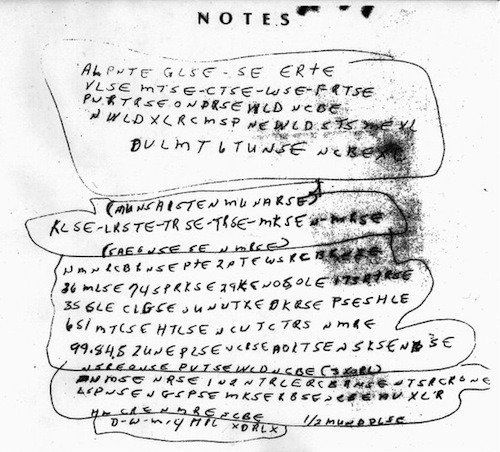 NOTES
ALPNTE GLSE-SE ERTE
VLSE MTSE-CTSE-WSE-FRTSE
PNRTRSEONDRSEWLD NCBE
NWLDXLRCMSP NEWLDSTSMEXL
DULMT6TUNSE NCBEXC
(MUNSARSTENMUNARSE)
KLSE-LRSTE-TRSE-TRSE-MKSEN-MRSE
(SAEGNSESE NMBSE)
NMNRCBRNSEPTE2PTEWSRCBRNSE
36MLSE 74SPRKSE 29KENOSOLE
35GLE CLGSE UNUTXE DKRSE PSESHLE
651 MTCLSE HTLSE NCUTCTRS NMRE
99.84.52UNEPLSE NCRSE AOLTSENSKSENSE
NSREONSE PVTSEWLDNCBE (3XORL)
NMSE NRSE INRNTRLERCBRNSENTSRCRONE
LSPNSENGSPSE MKSERBSENCBE AUXLR
HM CRE NMRE NCBE 1/2 MUNDPLSE
D-W-M-4 MPL XDRLX